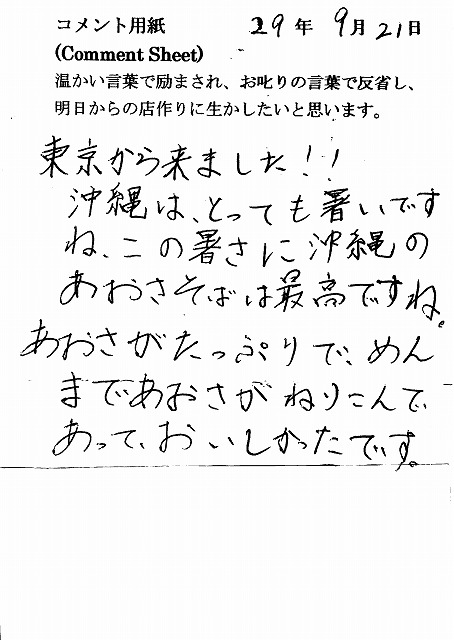 コメント用紙 29年9月21日
(Comment Sheet)
温かい言葉で励まされ、お叱りの言葉で反省し、
明日からの店作りに生かしたいと思います。
東京から来ました!!
沖縄は、とっても暑いです
ね、この暑さに沖縄の
あおさそばは最高ですね。
あおさがたっぷりで、めん
まであおさがねりこんで、
あって、おいしかったです。